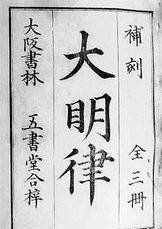 補刻 全三冊
大明律
大阪書林 五書堂合梓